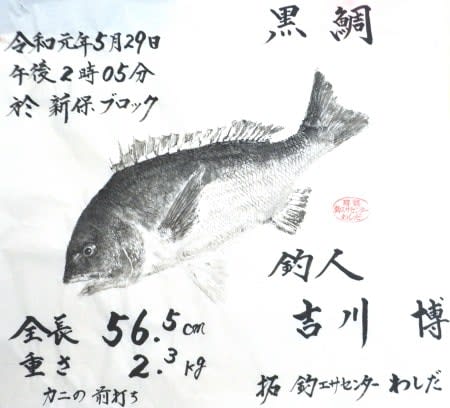 黒鯛
令和元年5月29日
午後2時05分
於 新保ブロック
釣人
吉川 博
全長 56.5cm
重さ 2.3kg
カニの前打ち
拓 釣エサセンターわしだ
釣エサセンター
わしだ